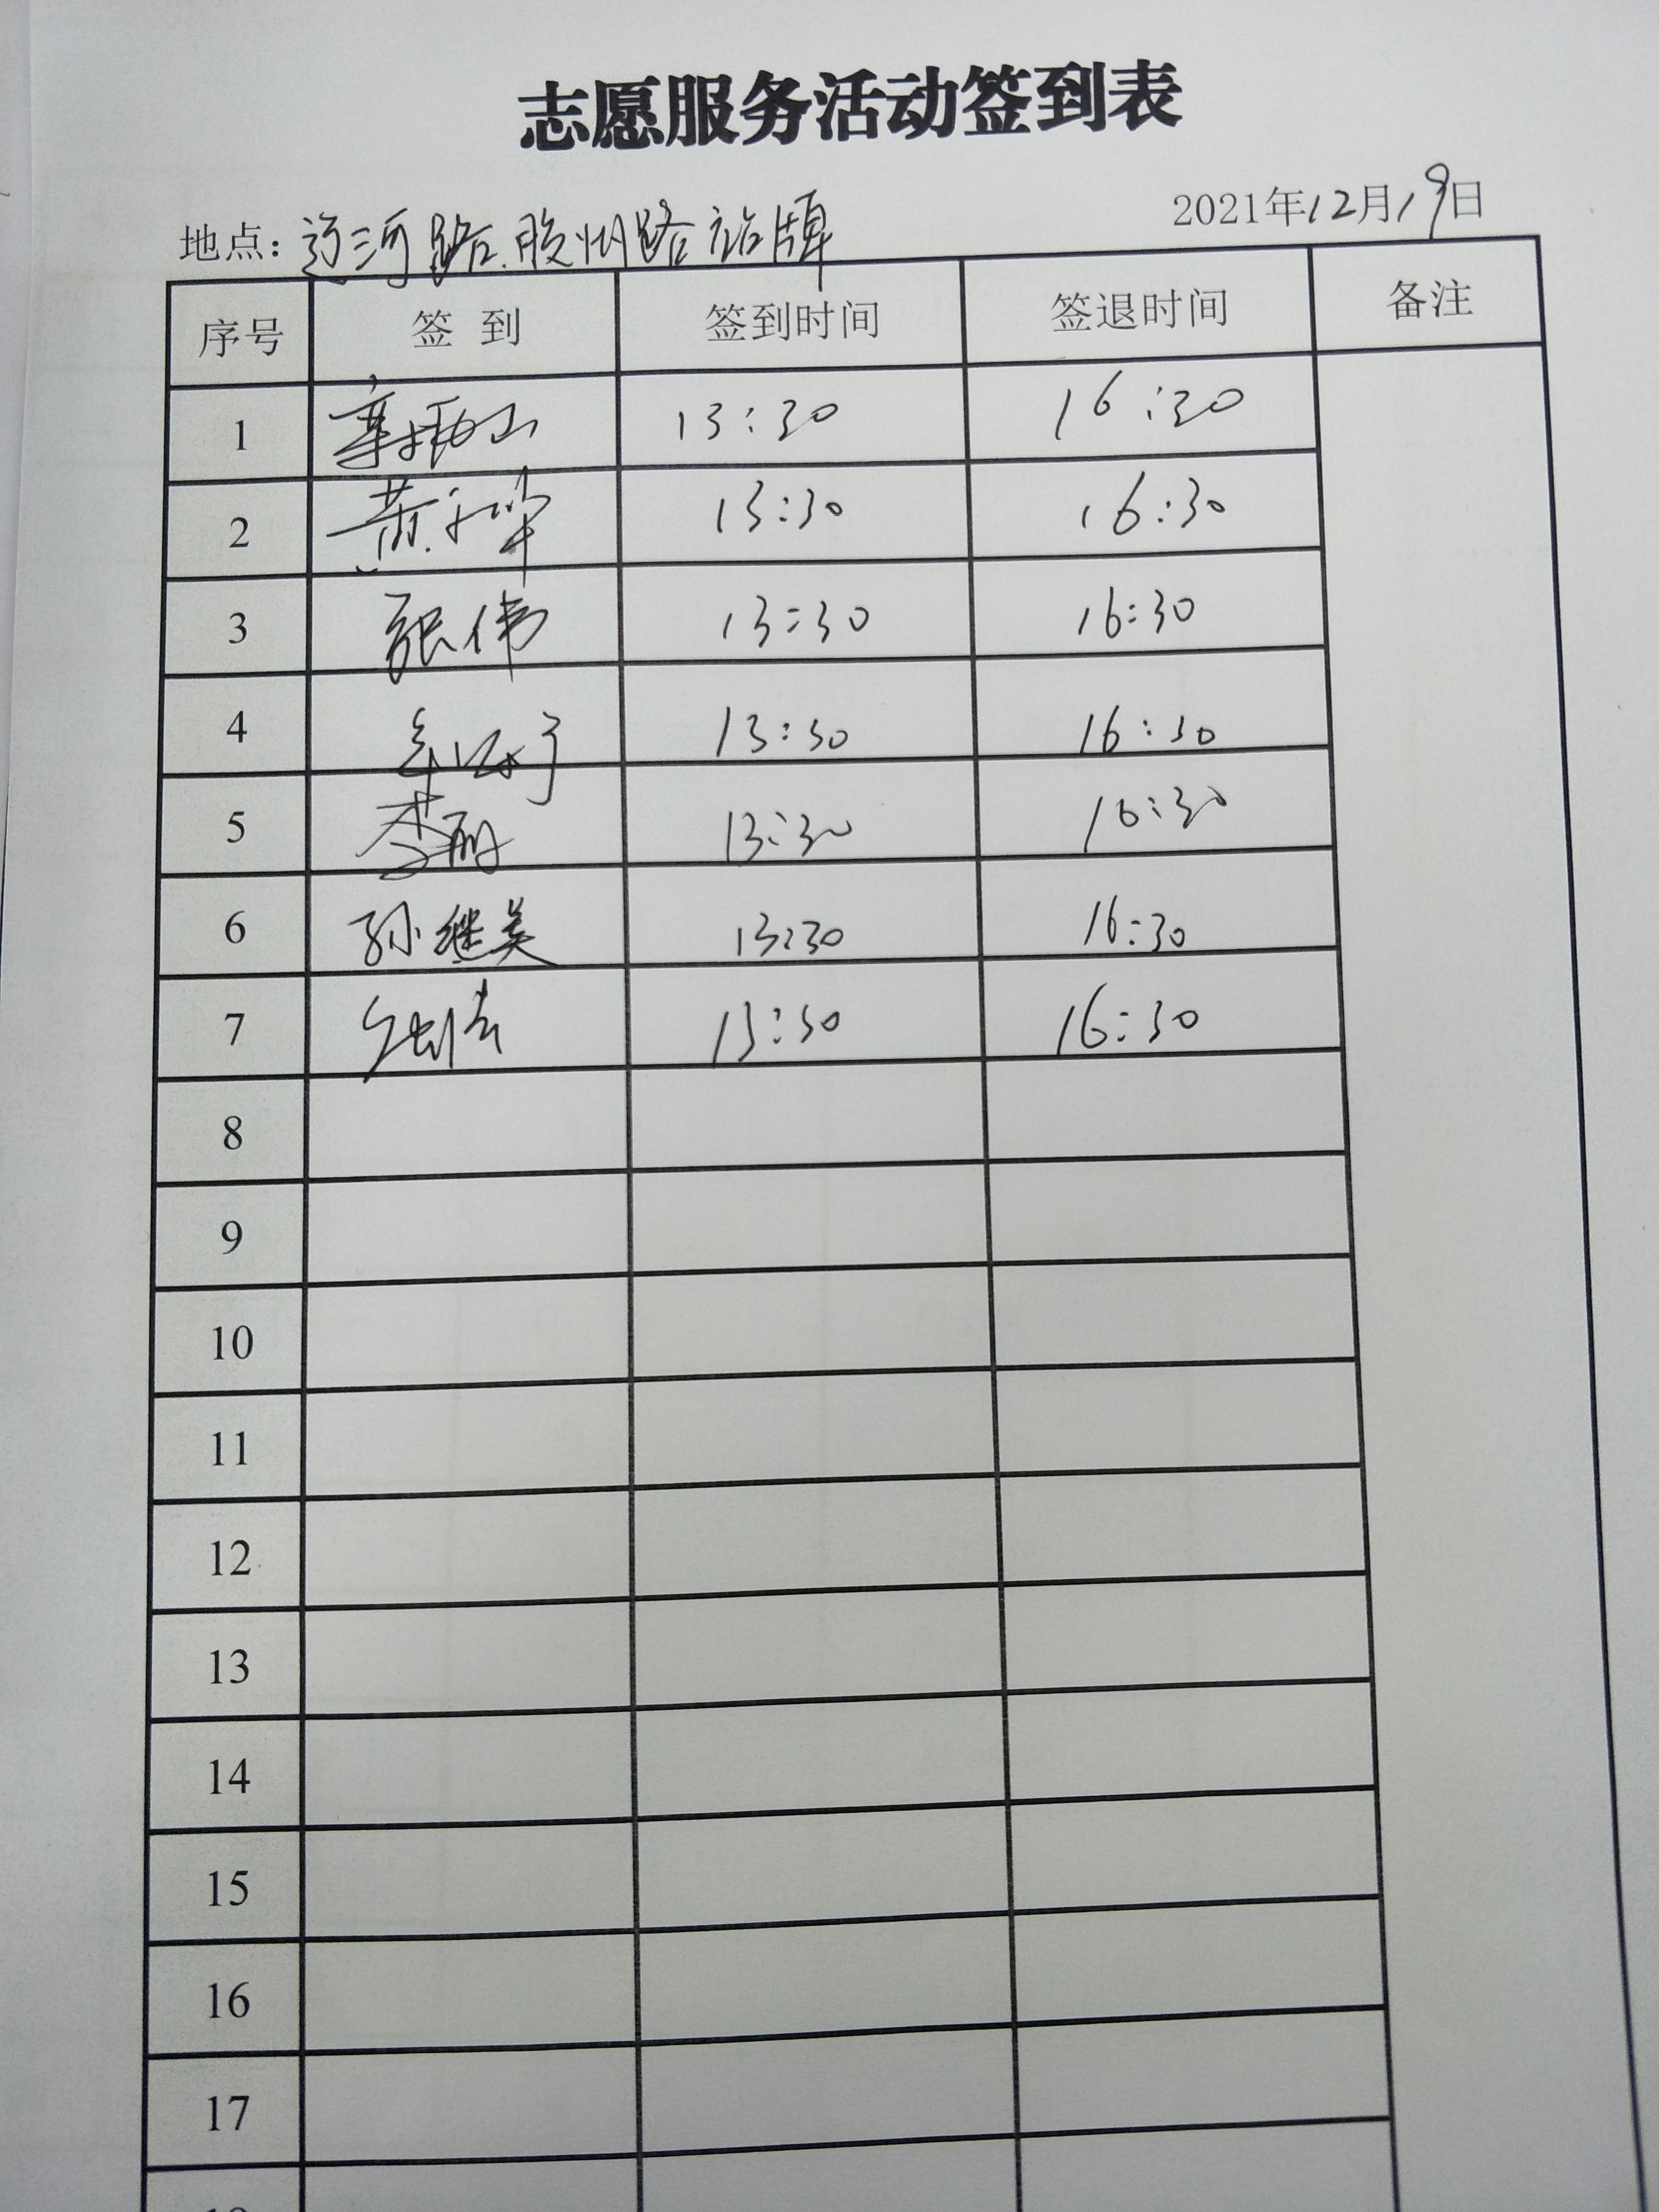 志愿服务活动签到表
地点：辽河路.胶州路站牌 2021年12月19日
序号 签 到 签到时间 签退时间 备注
1 13:30 16:30
2 黄 13:30 16:30
3 张伟 13:30 16:30
4 13:30 16:30
5 李丽 13:30 16:30
6 孙继美 13:30 16:30
7 13:30 16:30
8
9
10
11
12
13
14
15
16
17